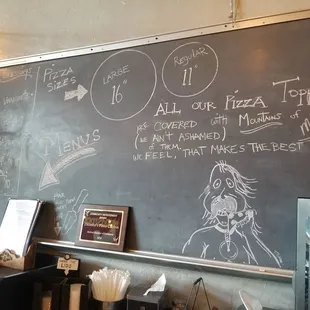 Pizza
Sizes
LARGE
16"
REGULAR
11"
ALL OUR PIZZA TOPP
ARE COVERED with MOUNTAINS OF
(WE AIN'T ASHAMED)
OF THEM,
WE FEEL, THAT MAKES THE BEST
MENUS